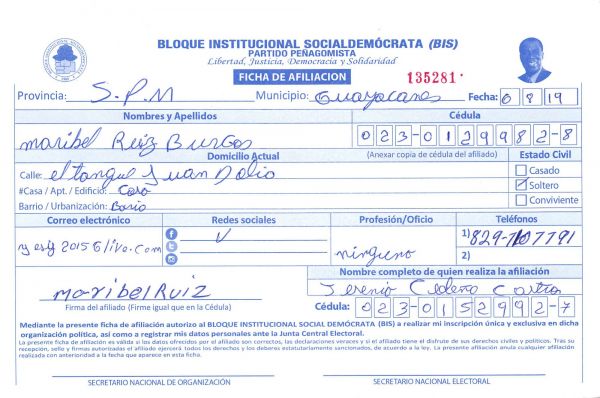 BLOQUE INSTITUCIONAL SOCIALDEMÓCRATA (BIS)
PARTIDO PEÑAGOMISTA
Libertad, Justicia, Democracia y Solidaridad
FICHA DE AFILIACION
135281
Provincia: S.P.M Municipio: Guayacanes Fecha: 6 8 19
Nombres y Apellidos Cédula
Maribel Ruiz Burgos 023-0129982-8
Domicilio Actual (Anexar copia de cédula del afiliado) Estado Civil
Calle: el tanque Juan Dolio Casado
#Casa / Apt. / Edificio: Casa Soltero
Barrio / Urbanización: Bario Conviviente
Correo electrónico Redes sociales Profesión/Oficio Teléfonos
2015@live.com ninguno 1) 829-707791
2)
Nombre completo de quien realiza la afiliación
Maribel Ruiz Cedeño Castro
Firma del afiliado (Firme igual que en la Cédula) Cédula: 023-0152992-7
Mediante la presente ficha de afiliación autorizo al BLOQUE INSTITUCIONAL SOCIAL DEMÓCRATA (BIS) a realizar mi inscripción única y exclusiva en dicha
organización política, así como a registrar mis datos personales ante la Junta Central Electoral.
La presente ficha de afiliación es válida si los datos ofrecidos por el afiliado son correctos, las declaraciones veraces y si el afiliado tiene el disfrute de sus derechos civiles y políticos. Tras su
recepción, sello y firmas autorizadas el afiliado ejercerá todos los derechos y los deberes estatutariamente sancionados, de acuerdo a la ley. La presente afiliación anula cualquier afiliación
realizada con anterioridad a la fecha que aparece en esta ficha.
SECRETARIO NACIONAL DE ORGANIZACIÓN SECRETARIO NACIONAL ELECTORAL